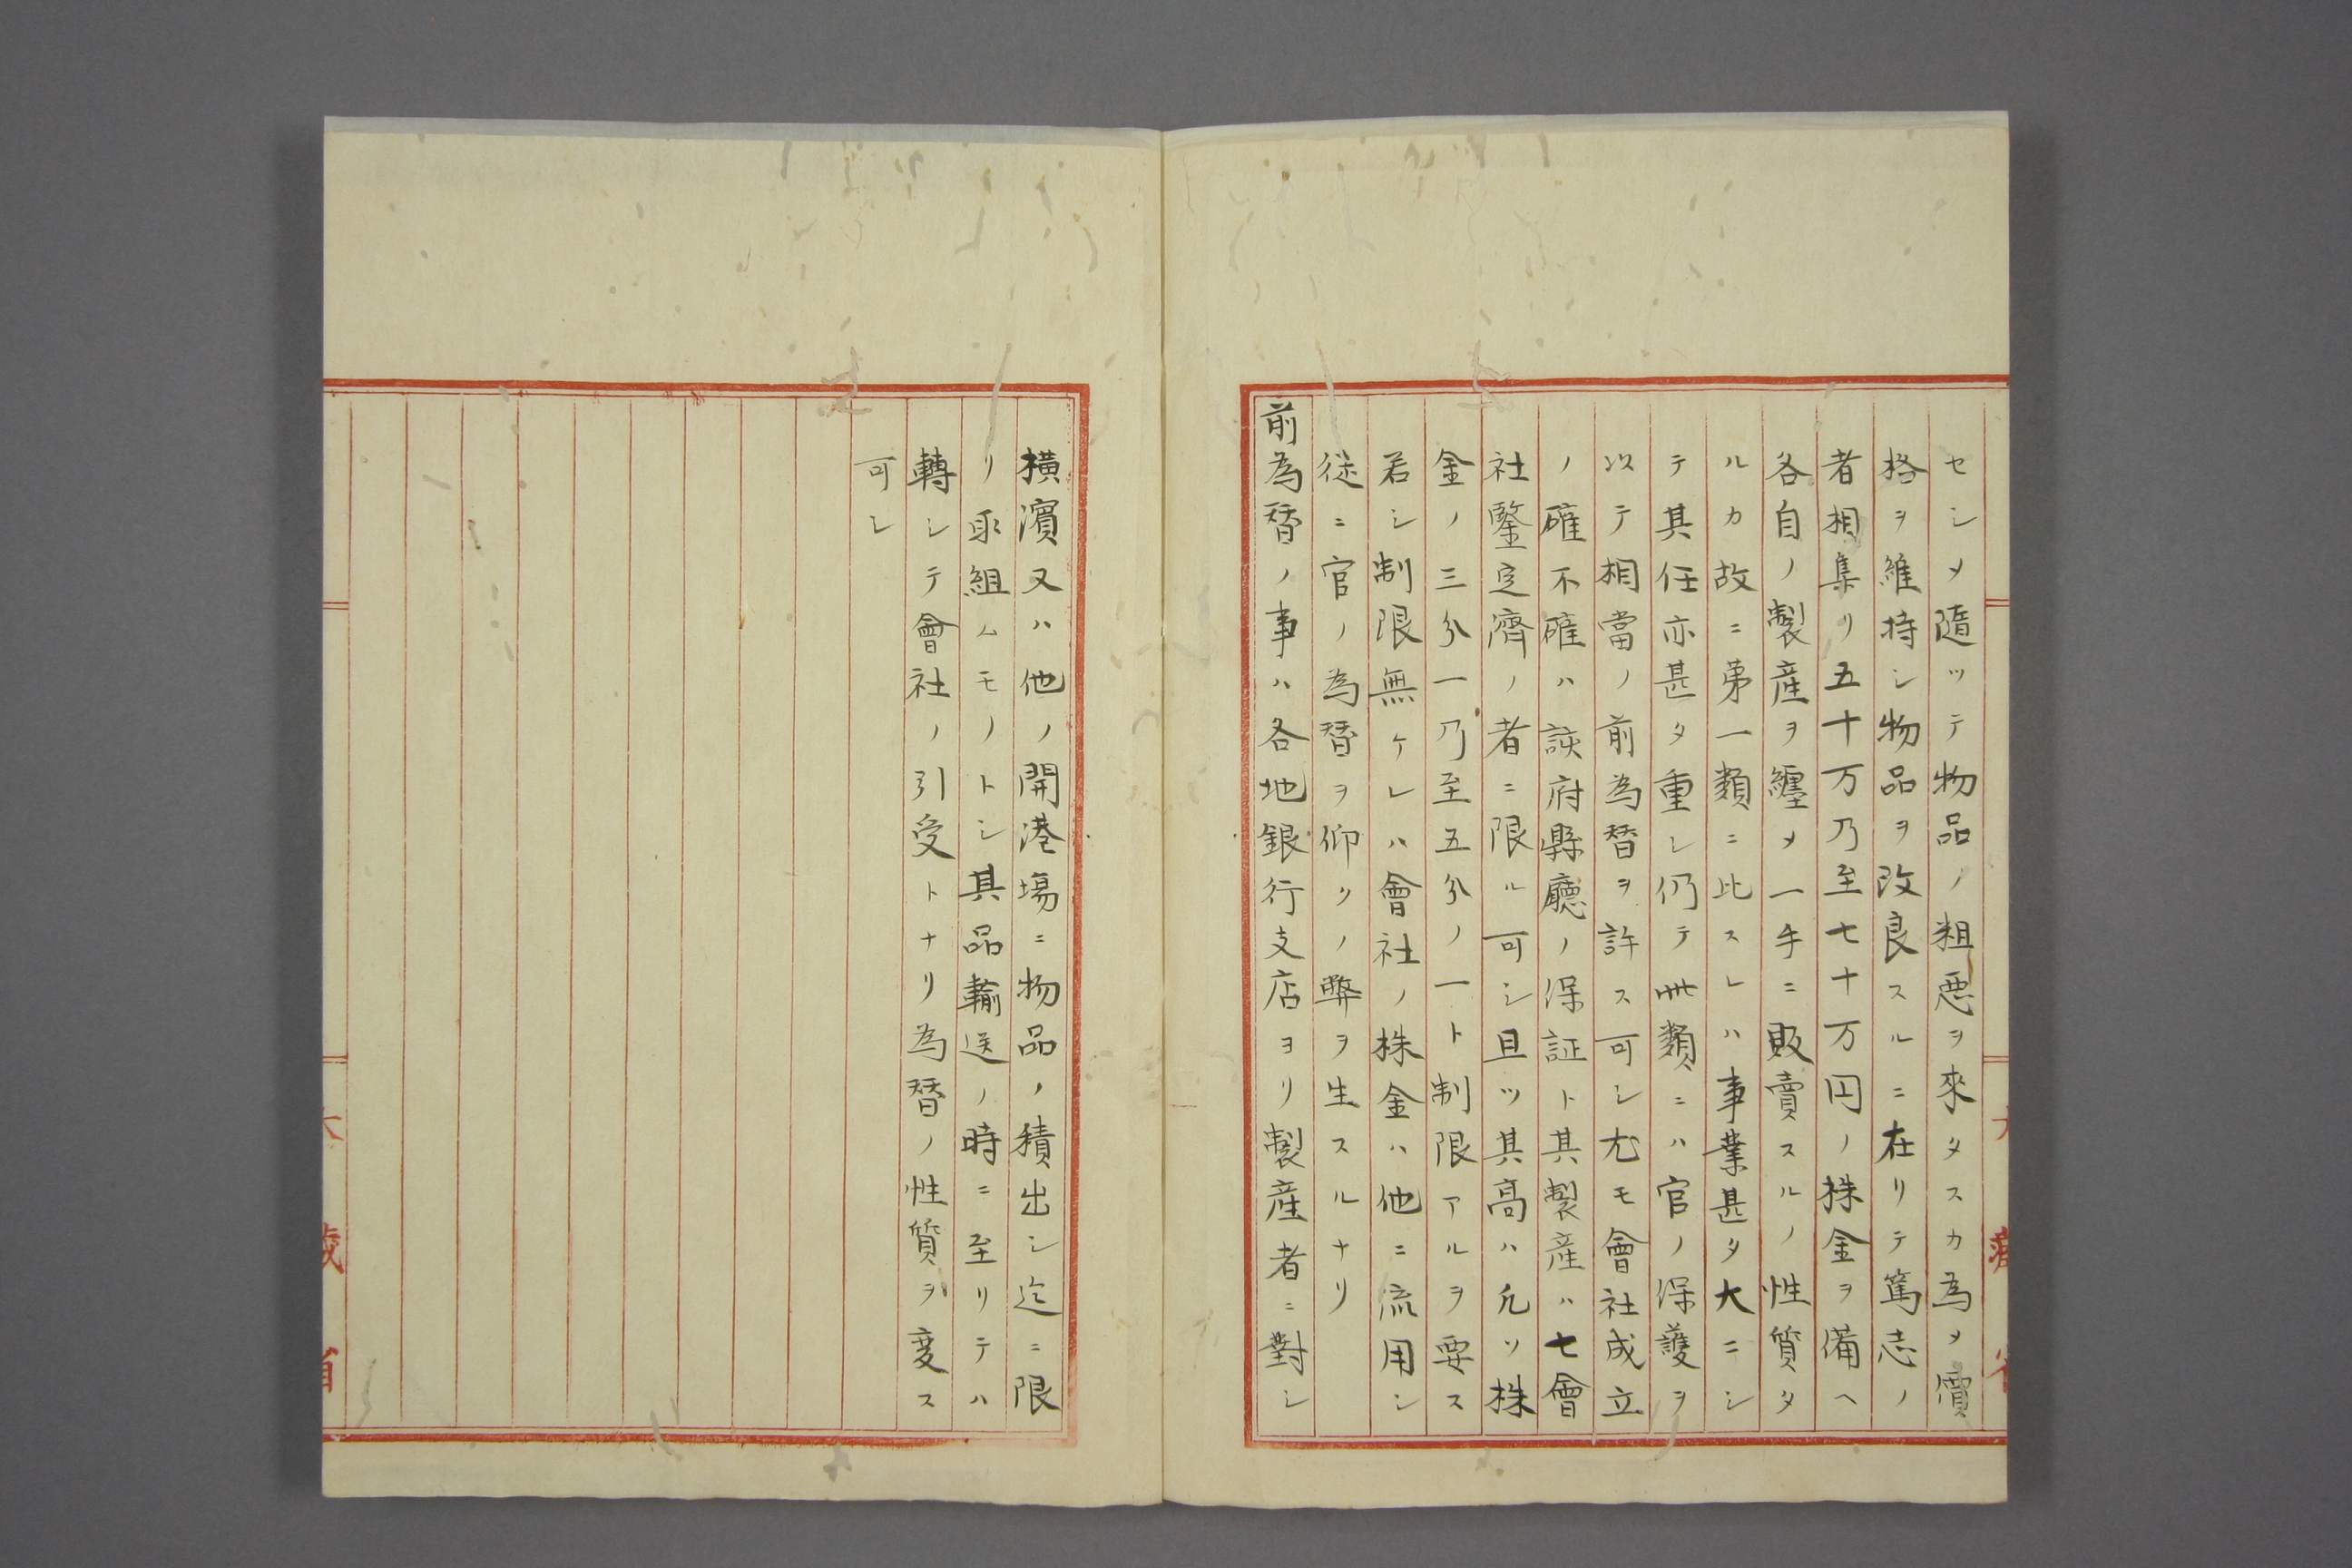 セシメ隨ツテ物品ノ粗悪ヲ來タスカ為メ價
格ヲ維持シ物品ヲ改良スルニ在リテ篤志ノ
者相集リ五十万乃至七十万円ノ株金ヲ備ヘ
各自ノ製産ヲ纏メ一手ニ販賣スルノ性質タ
ルカ故ニ第一類ニ比スレハ事業甚タ大ニシ
テ其任亦甚タ重シ仍テ此類ニハ官ノ保護ヲ
以テ相當ノ前為替ヲ許ス可シ尤モ會社成立
ノ確不確ハ該府縣廳ノ保証ト其製産ハ七會
社鑒定濟ノ者ニ限ル可シ且ツ其高ハ凡ソ株
金ノ三分一乃至五分ノ一ト制限アルヲ要ス
若シ制限無ケレハ會社ノ株金ハ他ニ流用シ
徒ニ官ノ為替ヲ仰クノ弊ヲ生スルナリ
前為替ノ事ハ各地銀行支店ヨリ製産者ニ對シ
横濱又ハ他ノ開港塲ニ物品ノ積出シ迄ニ限
リ取組ムモノトシ其品輸送ノ時ニ至リテハ
轉シテ會社ノ引受トナリ為替ノ性質ヲ変ス
可シ
大藏省
大藏省